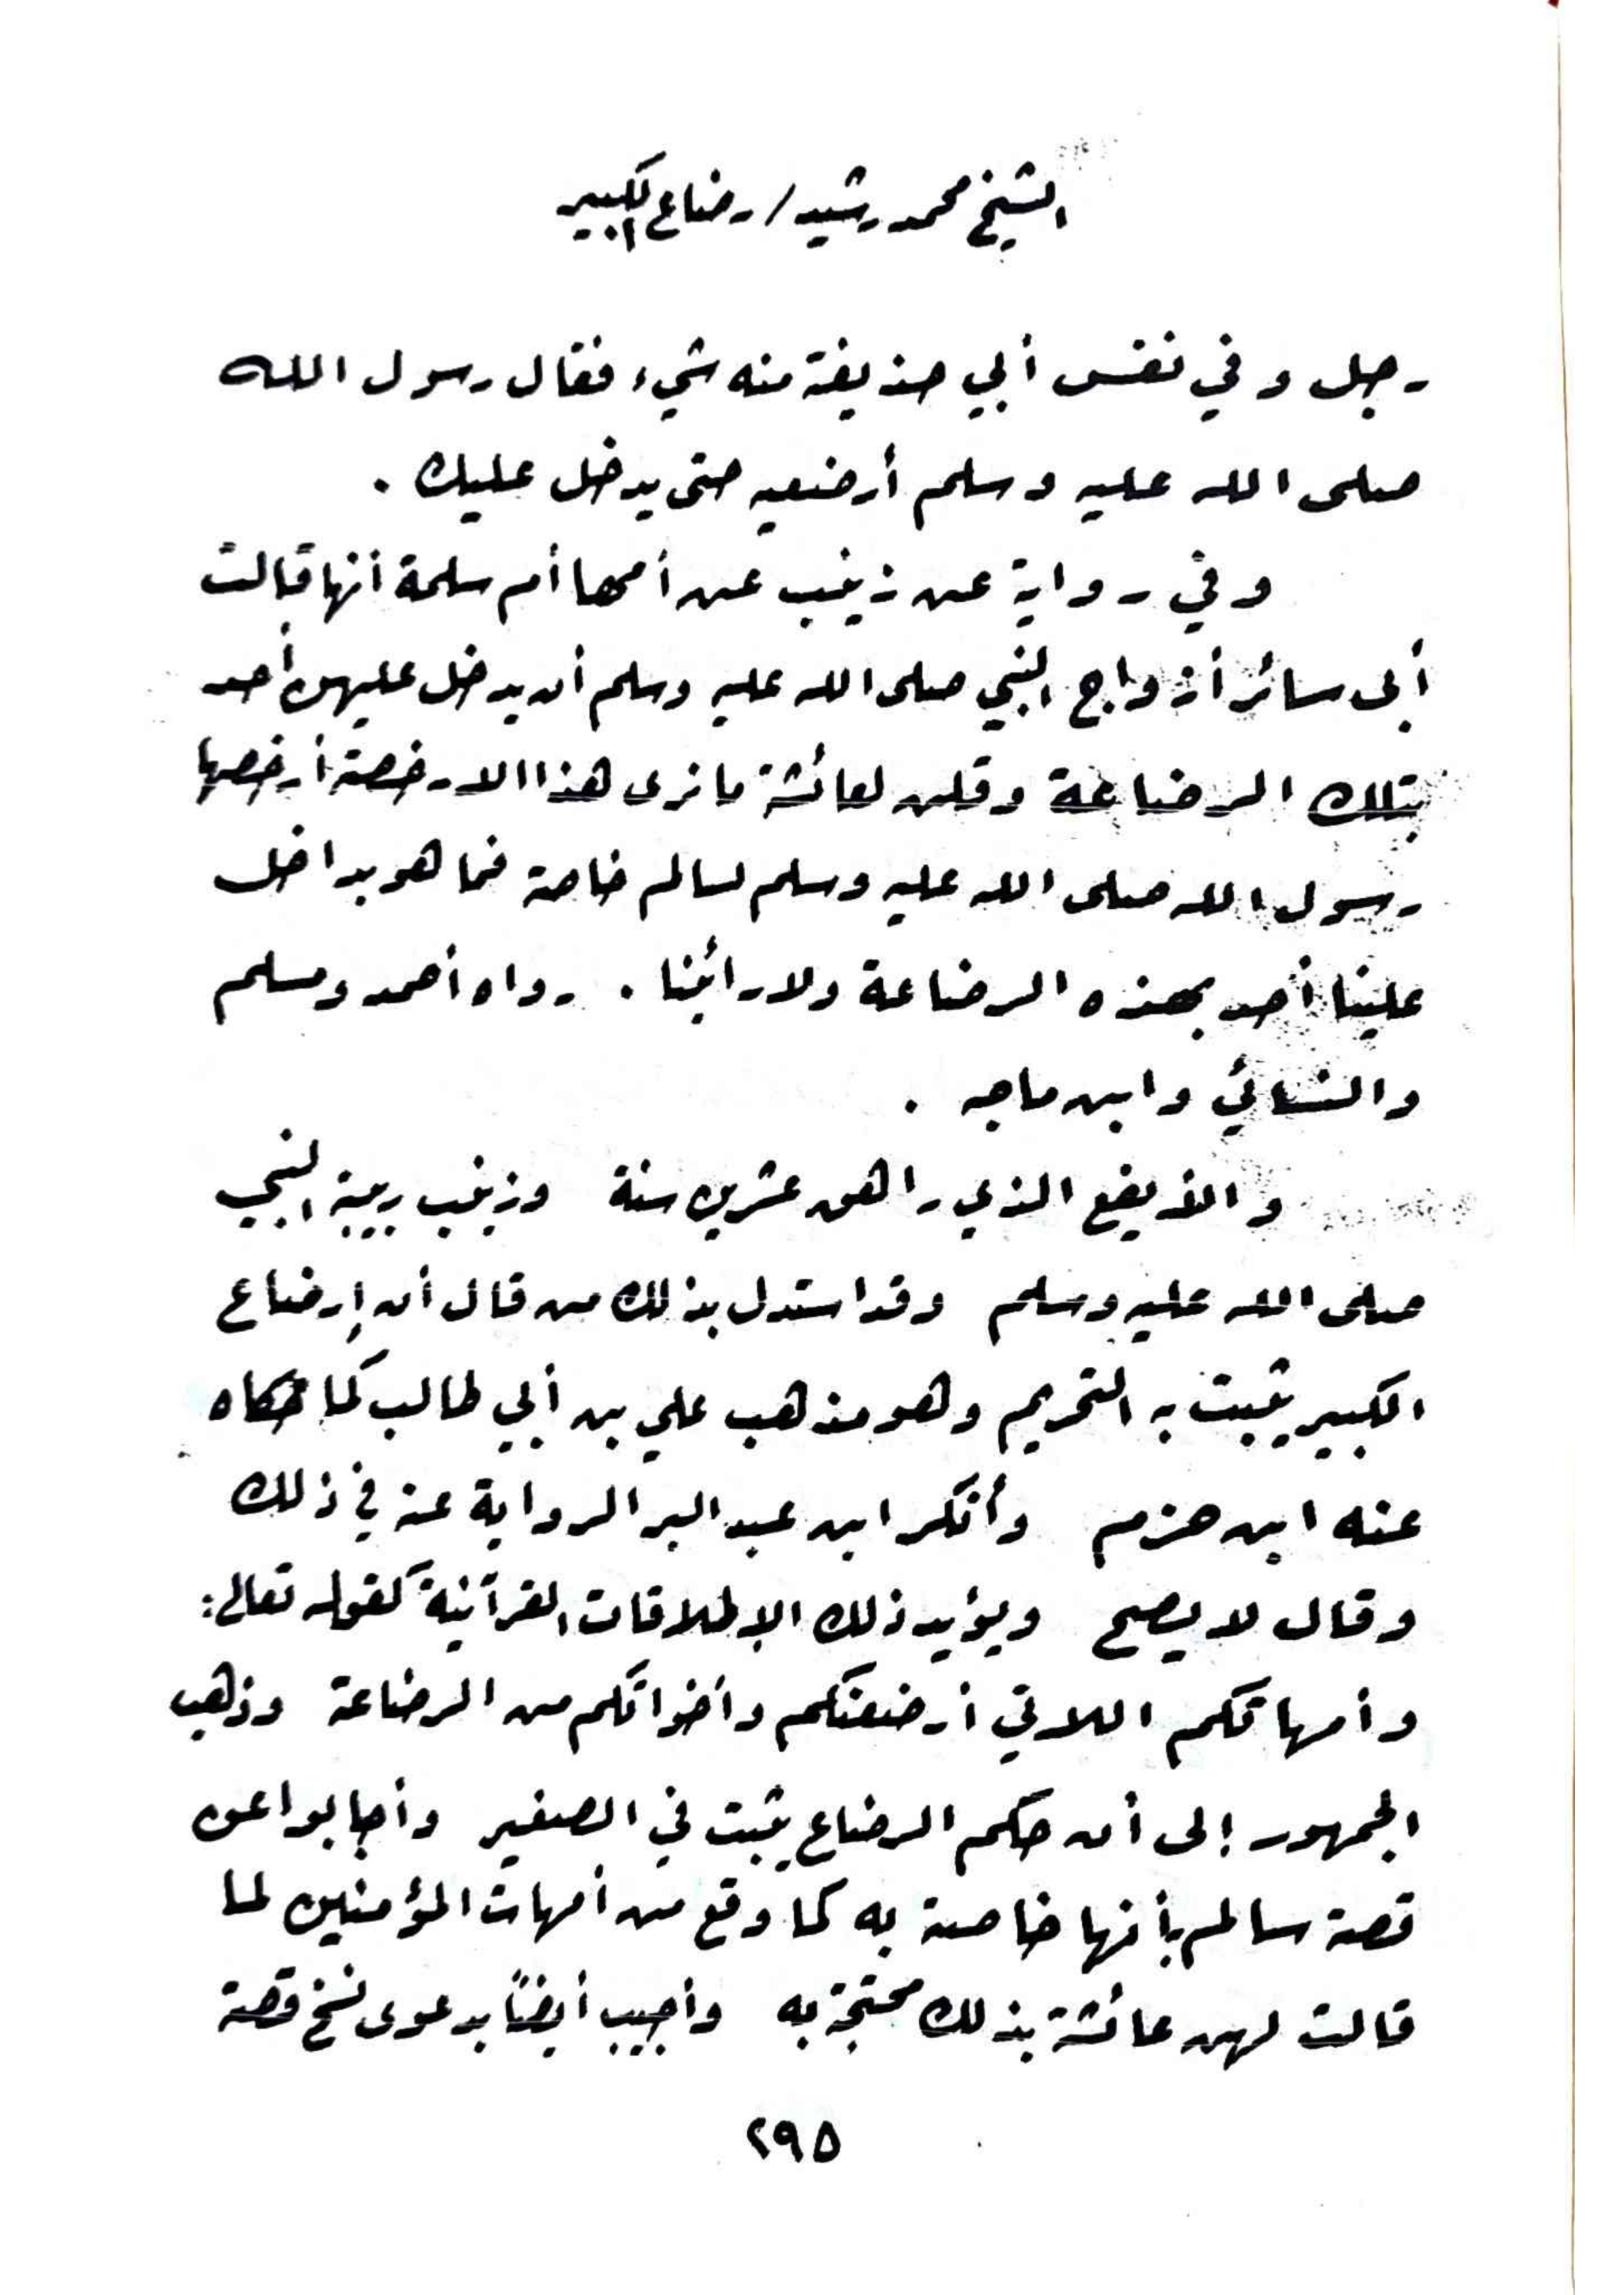 الشيخ محمد رشيد / رضاع الكبير
رجل وفي نفس أبي حذيفة منه شيء فقال رسول الله
صلى الله عليه وسلم أرضعيه حتى يدخل عليك .
وفي رواية عن زينب عن أمها أم سلمة أنها قالت
أبى سائر أزواج النبي صلى الله عليه وسلم أن يدخل عليهن أحد
بتلك الرضاعة وقلن لعائشة ما نرى هذا الا رخصة أرخصها
رسول الله صلى الله عليه وسلم لسالم خاصة فما هو بداخل
علينا أحد بهذه الرضاعة ولا رائينا . رواه أحمد ومسلم
والنسائي وابن ماجه .
والأيفع الذي راهق عشرين سنة وزينب ربيبة النبي
صلى الله عليه وسلم وقد استدل بذلك من قال أن إرضاع
الكبير يثبت به التحريم وهو مذهب علي بن أبي طالب كما حكاه
عنه ابن حزم وأنكر ابن عبد البر الرواية عنه في ذلك
وقال لا يصح ويؤيد ذلك الإطلاقات القرآنية كقوله تعالى:
وأمهاتكم اللاتي أرضعنكم وأخواتكم من الرضاعة وذهب
الجمهور إلى أن حكم الرضاع يثبت في الصغير وأجابوا عن
قصة سالم بأنها خاصة به كما وقع من أمهات المؤمنين لما
قالت لهن عائشة بذلك محتجة به وأجيب أيضاً بدعوى نسخ قصة
٢٩٥